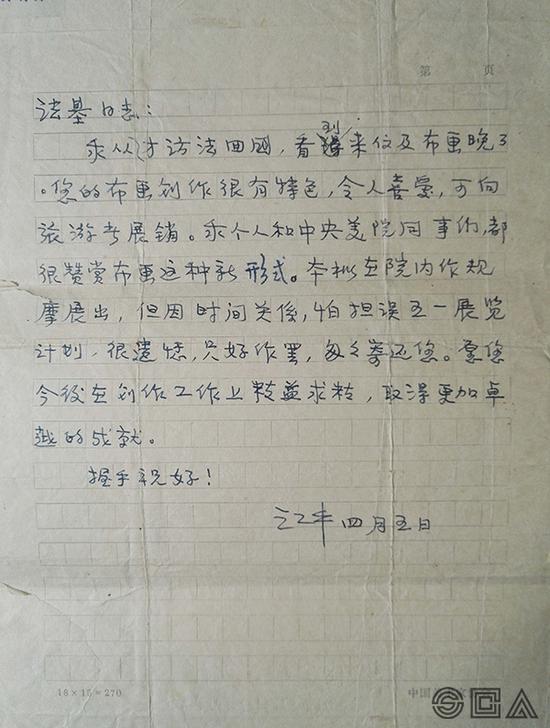 第 页
法基同志：
我才访法回国，看到来信及布画晚了
。您的布画创作很有特色，令人喜爱，可向
旅游者展销。我个人和中央美院同事们，都
很赞赏布画这种新形式。本拟在院内作观
摩展出，但因时间关係，怕担误五一展览
计划，很遗憾，只好作罢，匆匆寄还您。愿您
今後在创作工作上精益求精，取得更加卓
越的成就。
握手祝好！
江丰 四月五日
18×15=270 中国